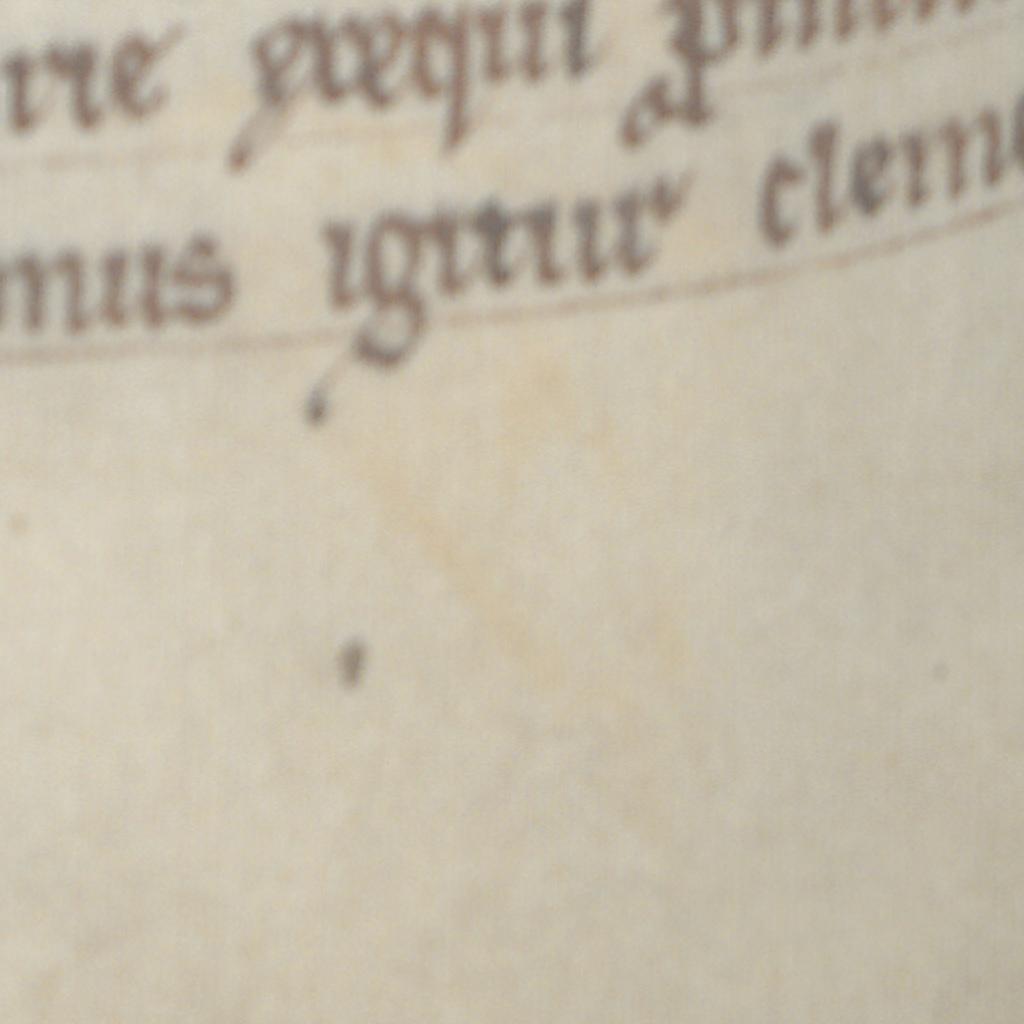 ire exequi
mus igitur cleme